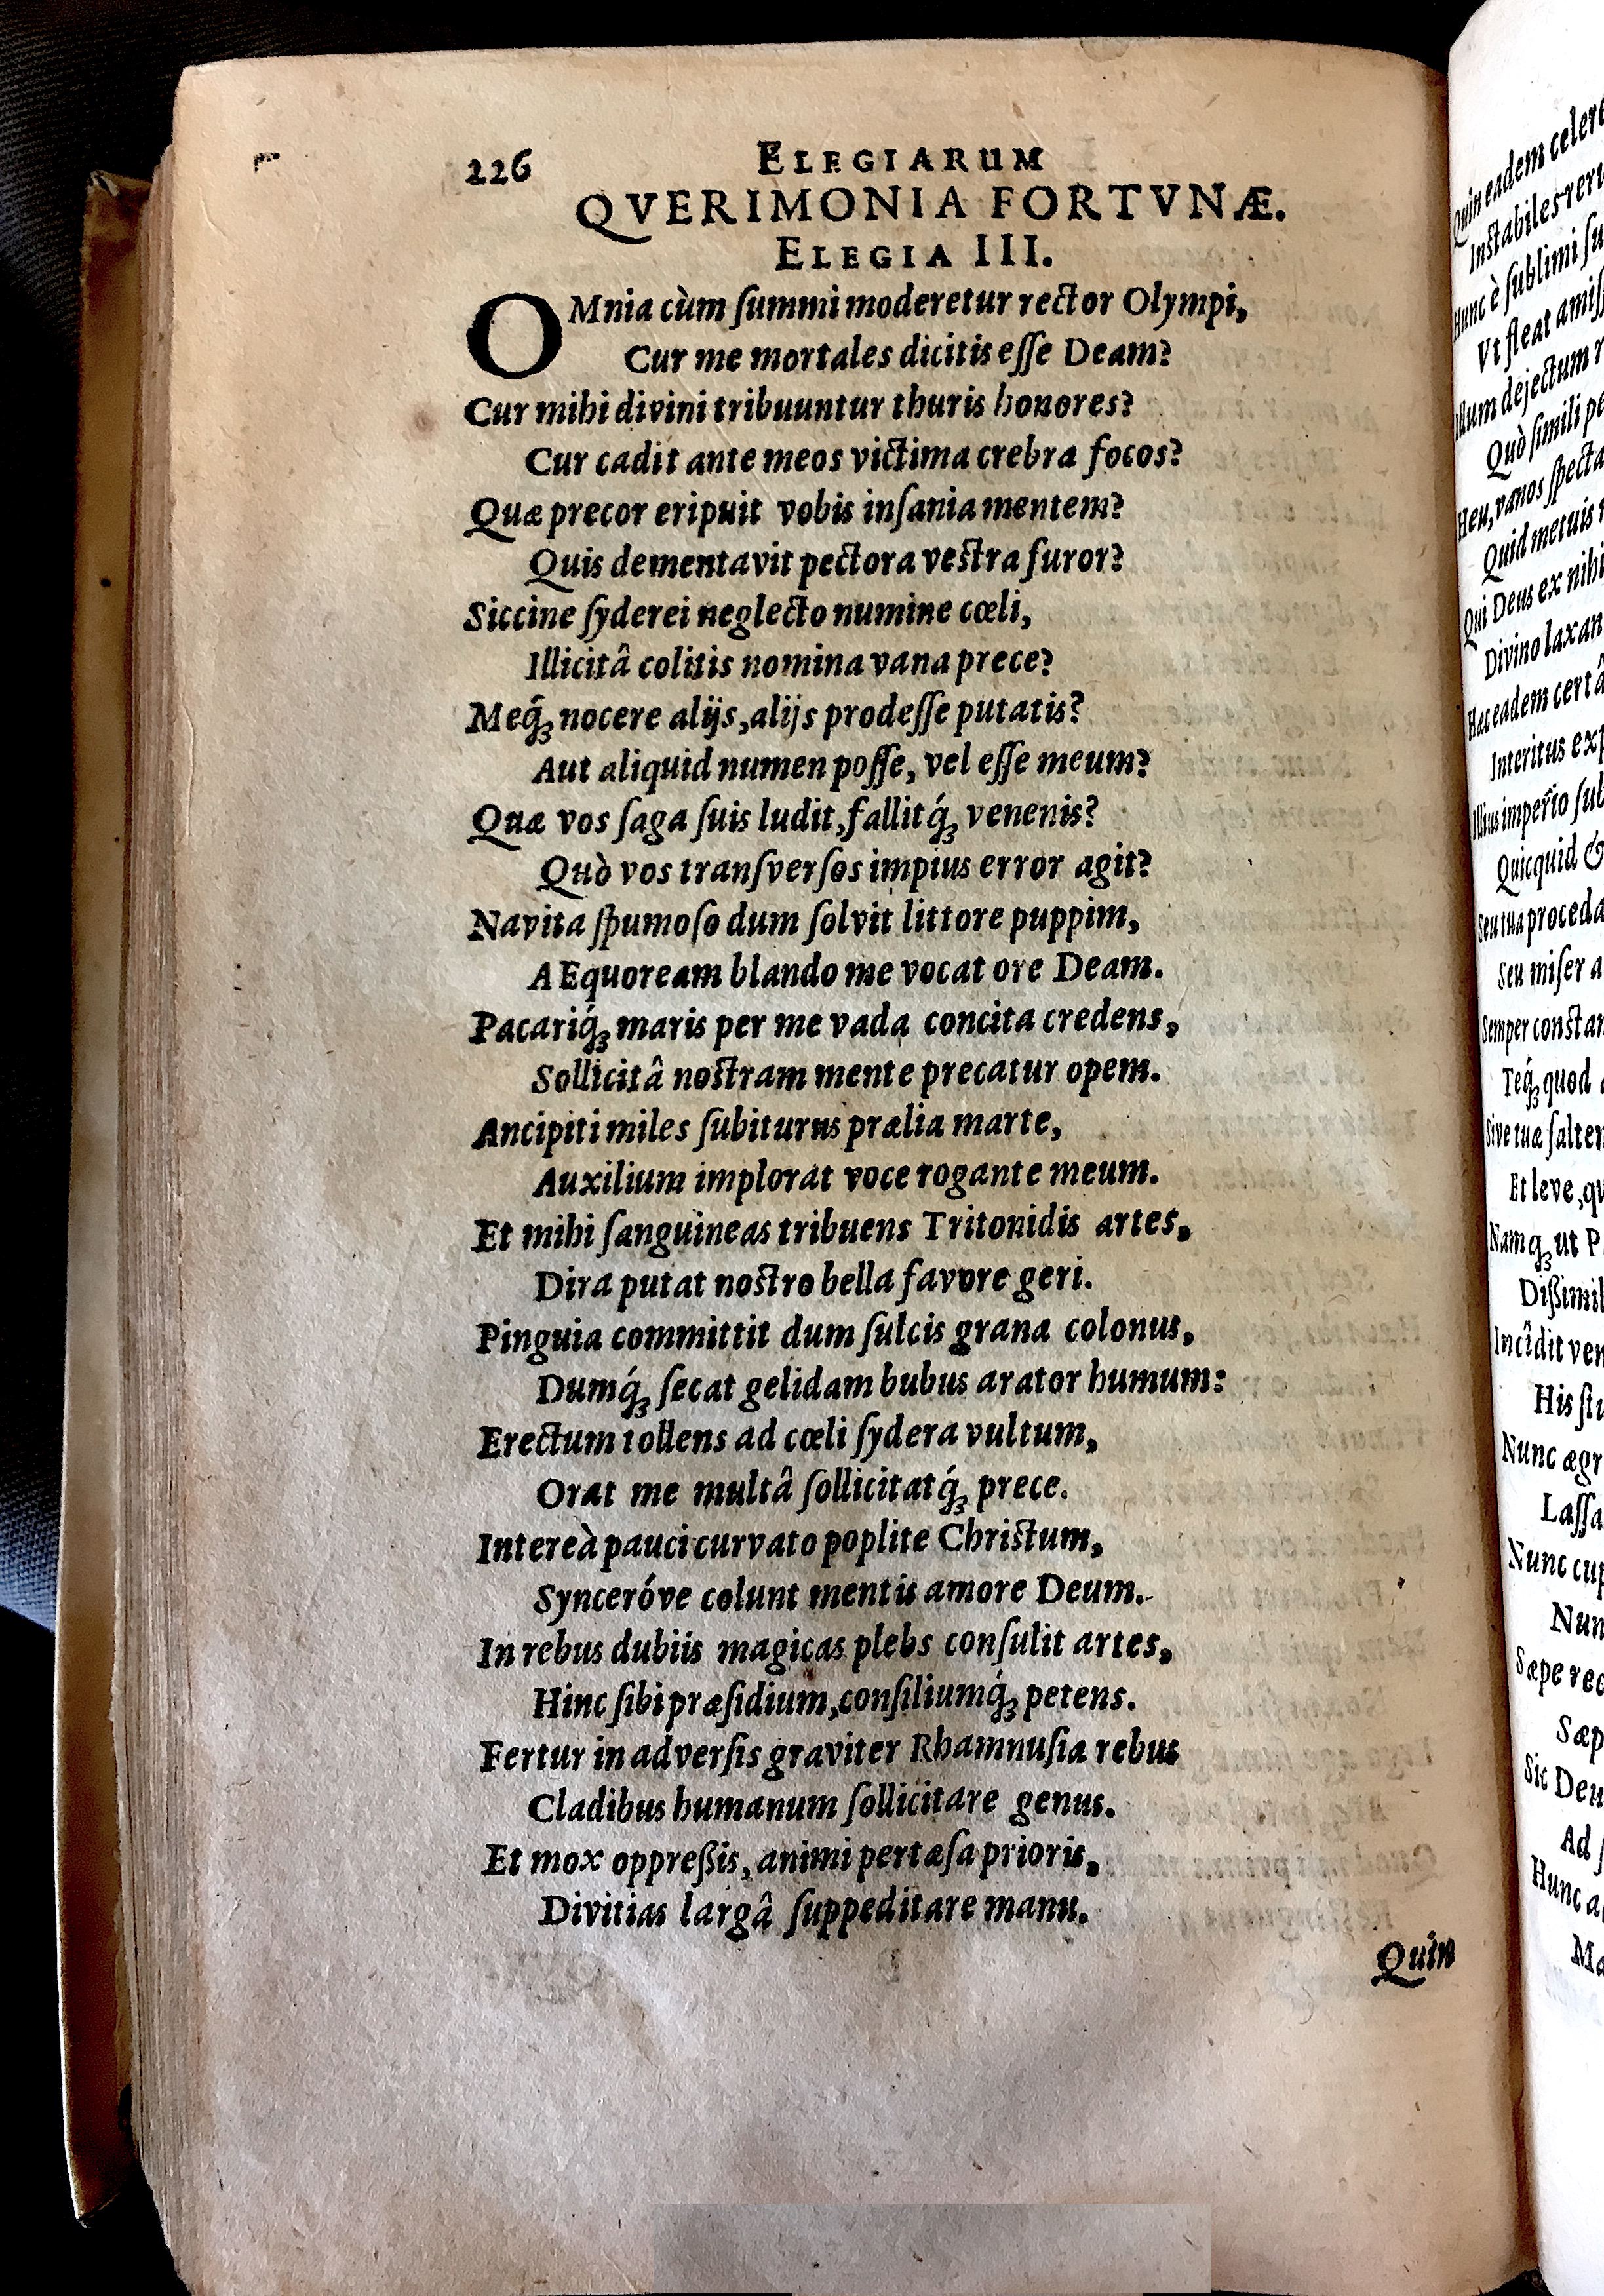 226 ELEGIARUM
QVERIMONIA FORTVNÆ.
ELEGIA III.
OMnia cùm ſummi moderetur rector Olympi,
Cur me mortales dicitis eſſe Deam?
Cur mihi divini tribuuntur thuris honores?
Cur cadit ante meos victima crebra focos?
Quæ precor eripuit vobis inſania mentem?
Quis dementavit pectora veſtra furor?
Siccine ſyderei neglecto numine cœli,
Illicitâ colitis nomina vana prece?
Meq́ꝫ nocere alijs, alijs prodeſſe putatis?
Aut aliquid numen poſſe, vel eſſe meum?
Quæ vos ſaga ſuis ludit, fallitq́ꝫ venenis?
Quò vos tranſverſos impius error agit?
Navita ſpumoſo dum ſolvit littore puppim,
AEquoream blando me vocat ore Deam.
Pacariq́ꝫ maris per me vada concita credens,
Sollicitâ noſtram mente precatur opem.
Ancipiti miles ſubiturus prælia marte,
Auxilium implorat voce rogante meum.
Et mihi ſanguineas tribuens Tritonidis artes,
Dira putat noſtro bella favore geri.
Pinguia committit dum ſulcis grana colonus,
Dumq́ꝫ ſecat gelidam bubus arator humum:
Erectum tollens ad cœli ſydera vultum,
Orat me multâ ſollicitatq́ꝫ prece.
Intereà pauci curvato poplite Chriſtum,
Synceróve colunt mentis amore Deum.
In rebus dubiis magicas plebs conſulit artes,
Hinc ſibi præſidium, conſiliumq́ꝫ petens.
Fertur in adverſis graviter Rhamnuſia rebus
Cladibus humanum ſollicitare genus.
Et mox oppreßis, animi pertæſa prioris,
Divitias largâ ſuppeditare manu.
Quin
Quin eadem celere
Inſtabiles reru
Hunc è ſublimi ſu
Vt fleat amiſſ
Illum dejectum
Quò ſimili pe
Heu, vanos ſpecta
Quid metuis
Qui Deus ex nihi
Divino laxan
Hac eadem certâ
Interitus exp
Illius imperio ſub
Quicquid &
Seu tua proceda
Seu miſer a
Semper conſtan
Teq́ꝫ quod
Sive tuæ ſalte
Et leve, qu
Namqꝫ ut P
Dißimil
Incîdit ven
His ſtu
Nunc ægr
Laſſa
Nunc cup
Nun
Sæpe rec
Sæp
Sic Deu
Ad
Hunc a
Ma